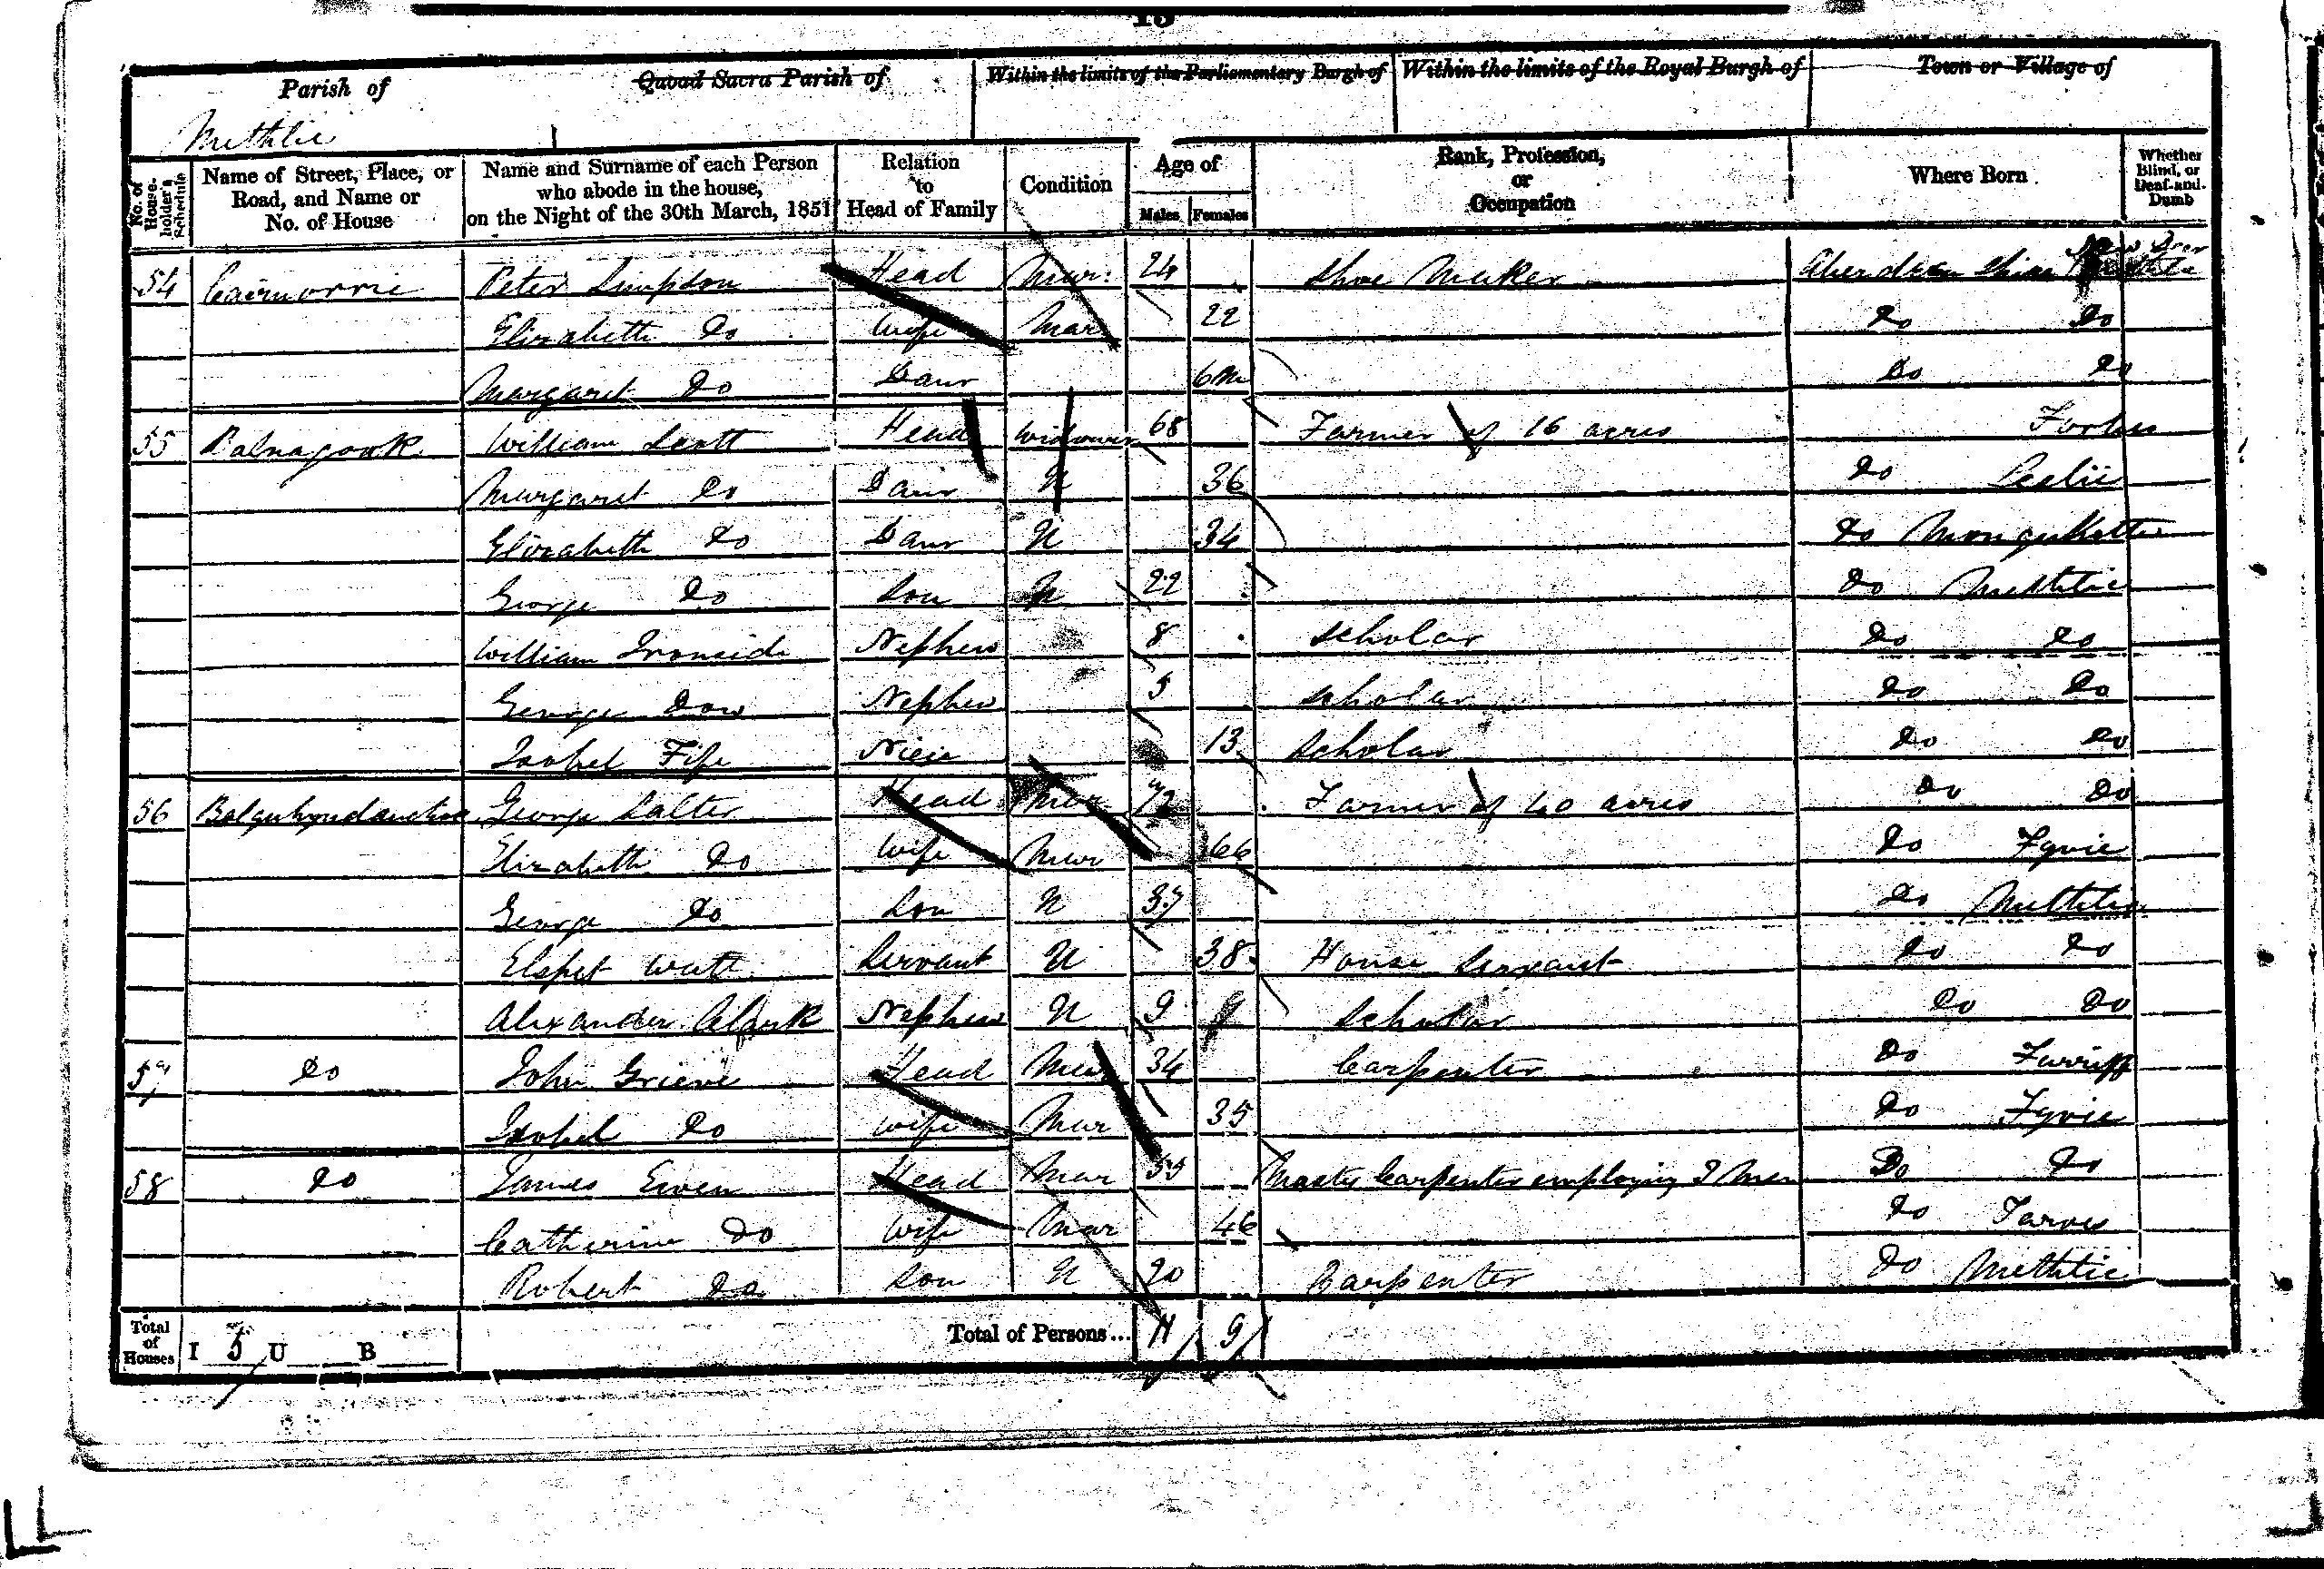 13
Parish of
Quoad Sacra Parish of
Within the limits of the Parliamentary Burgh of
Within the limits of the Royal Burgh of
Town or Village of
Methlic
No. of House-holder's Schedule
Name of Street, Place, or Road, and Name or No. of House
Name and Surname of each Person who abode in the house, on the Night of the 30th March, 1851
Relation to Head of Family
Condition
Age of
Males
Females
Rank, Profession, or Occupation
Where Born
Whether Blind, or Deaf-and-Dumb
54 Cairnorrie Peter Simpson Head Mar. 24 Shoe Maker Aberdeen Shire New Deer
Elizabeth Do Wife Mar 22 Do Do
Margaret Do Daur 6m Do Do
55 Balnagoak William Scott Head Widower 68 Farmer of 16 acres Forbes
Margaret Do Daur U 36 Do Leslie
Elizabeth Do Daur U 34 Do Monquhitter
George Do Son U 22 Do Methlic
William Ironside Nephew 8 Scholar Do Do
George Dow Nephew 5 Scholar Do Do
Isobel Fife Niece 13 Scholar Do Do
56 George Salter Head Mar 72 Farmer of 40 acres Do Do
Elizabeth Do Wife Mar 66 Do Fyvie
George Do Son U 37 Do Methlic
Elspet Watt Servant U 38 House Servant Do Do
Alexander Clark Nephew U 9 Scholar Do Do
57 Do John Grieve Head Mar 34 Carpenter Do Turriff
Isobel Do Wife Mar 35 Do Fyvie
58 Do James Ewen Head Mar 55 Master Carpenter employing 2 Men Do Do
Catherine Do Wife Mar 46 Do Tarves
Robert Do Son U 20 Carpenter Do Methlic
Total of Houses I 5 U B Total of Persons... 11 9